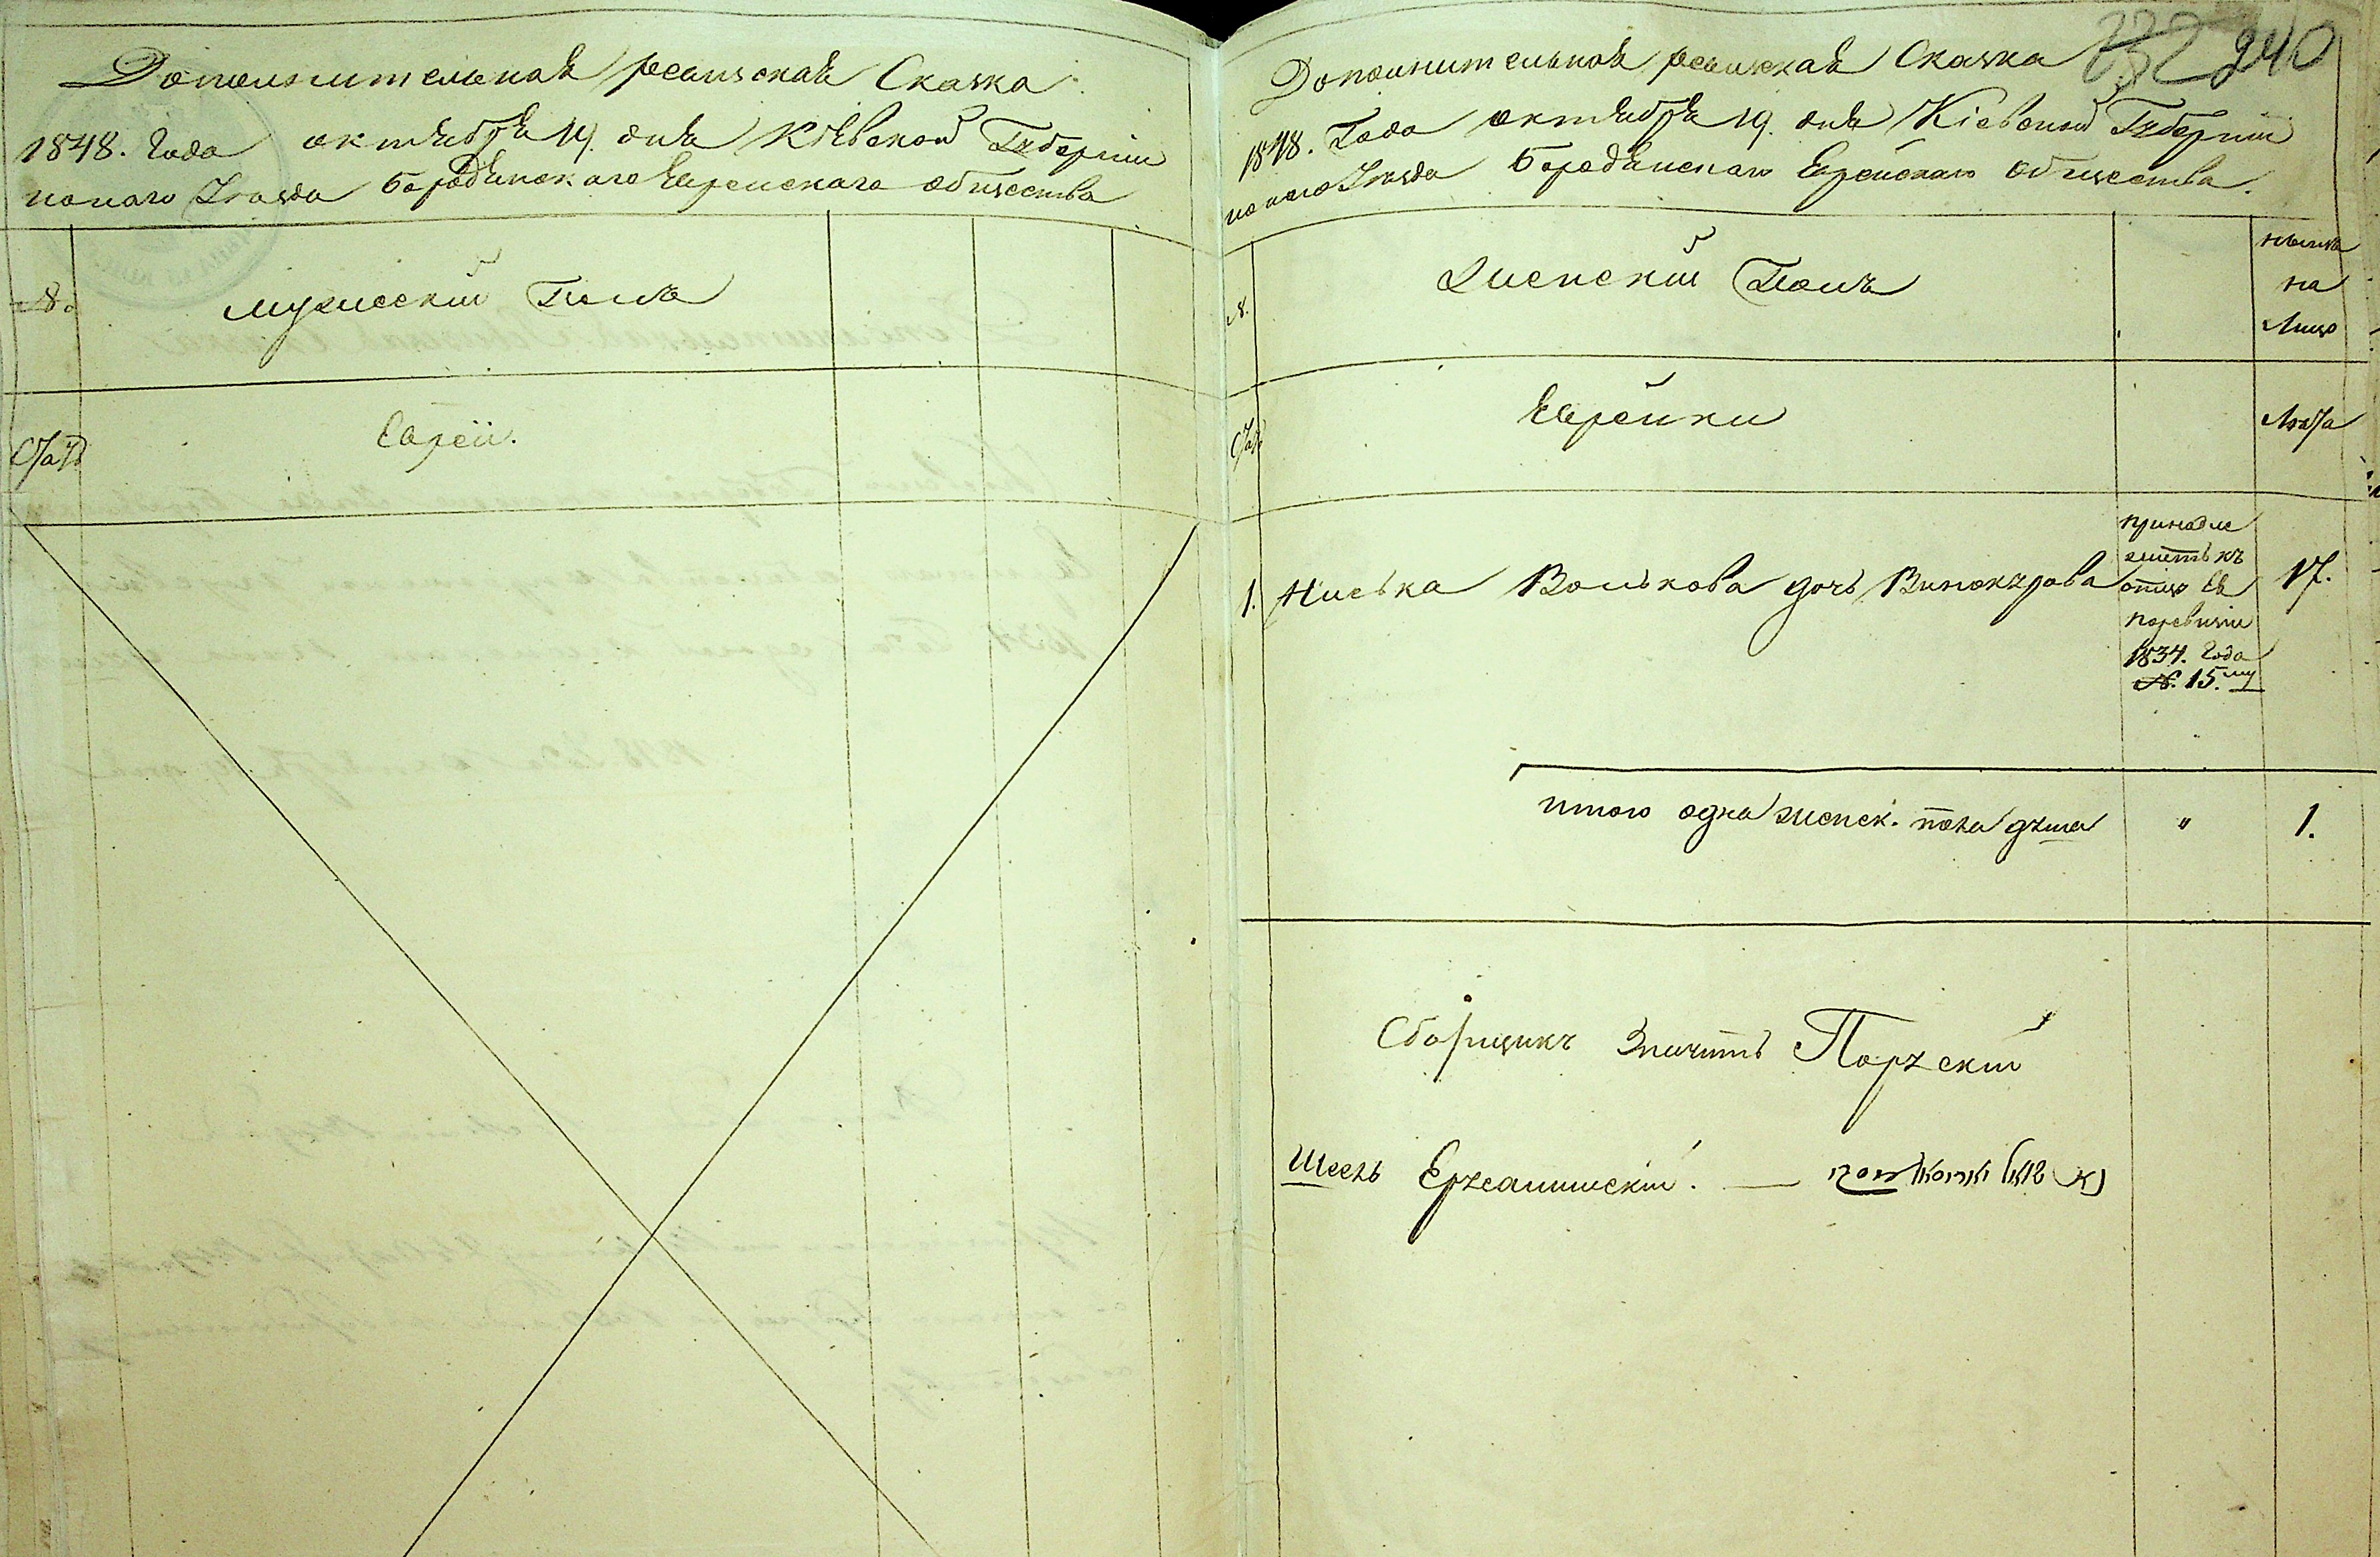 Дополнительная ревизская Сказка
1848. Года октября 19. дня Кіевской Губерніи
наго Уезда Бородянскаго Еврейскаго общества
№.
мужескій Полъ
Евреи.
232 240
Дополнительная ревизская Сказка
1848. Года октября 19. дня Кіевской Губерніи
наго Уезда Бородянскаго Еврейскаго общества.
№.
Женскій Полъ
ныне
на
Лицо
Еврейки
Лѣта
1. Хиська Волькова дочь Винокурова
принадле
житъ къ
отцу Ея
поревизіи
1834. Года
№. 15.му
17.
итого одна женск. пола душа
"
1.
Сборщикъ Значитъ Порускій
Ерусалимскій. —